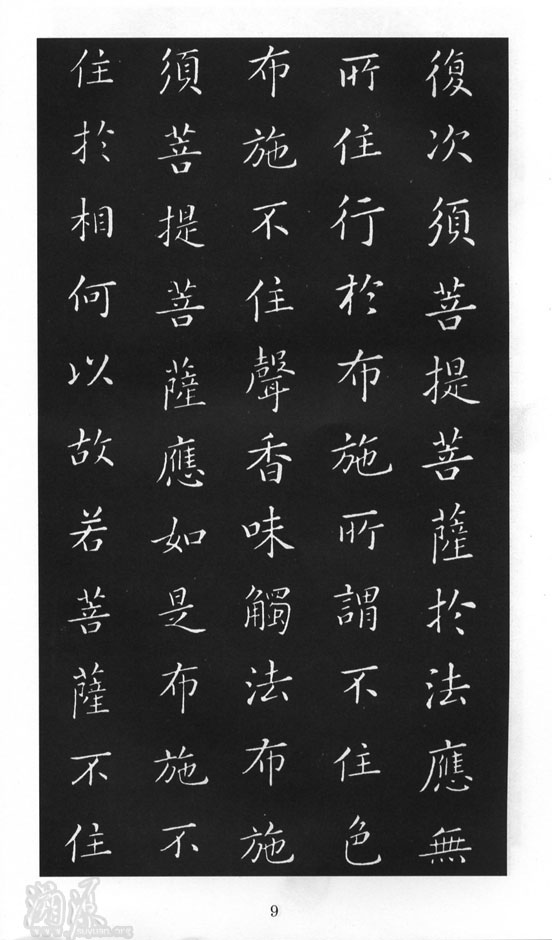 復次須菩提菩薩於法應無
所住行於布施所謂不住色
布施不住聲香味觸法布施
須菩提菩薩應如是布施不
住於相何以故若菩薩不住
9
溯源
suyuan.org